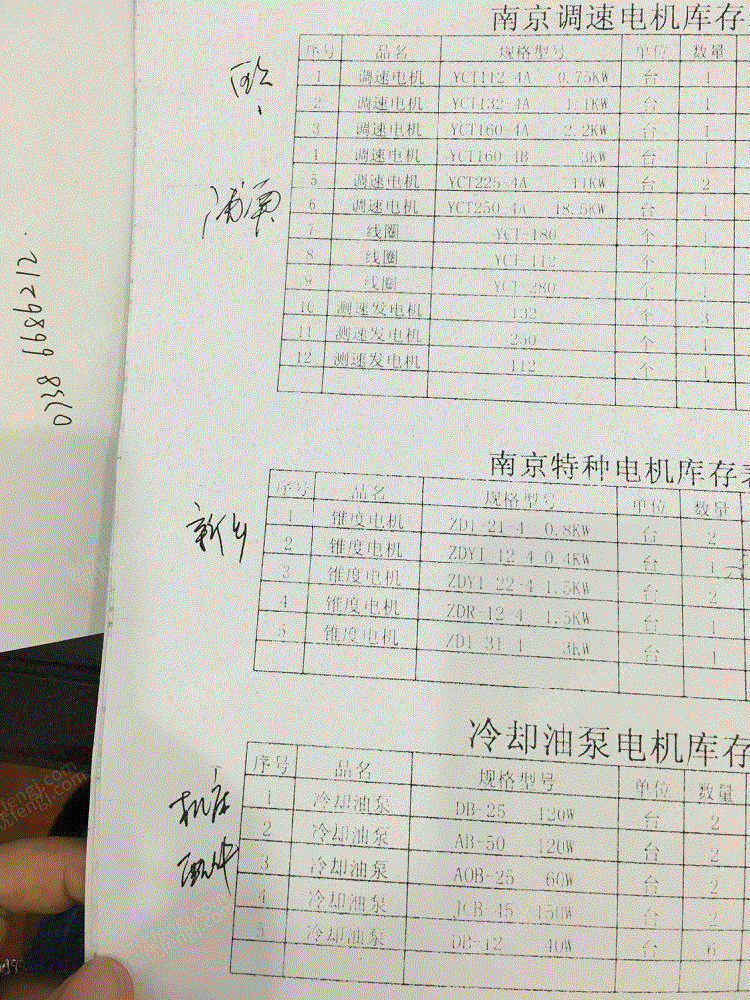 南京调速电机库存表
序号 品名 规格型号 单位 数量
1 调速电机 YCT112-4A 0.75KW 台 1
2 调速电机 YCT132-4A 1.1KW 台 1
3 调速电机 YCT160-4A 2.2KW 台 1
4 调速电机 YCT160-4B 3KW 台 1
5 调速电机 YCT225-4A 11KW 台 2
6 调速电机 YCT250-4A 18.5KW 台 1
7 线圈 YCT-180 个 1
8 线圈 YCT-112 个 1
9 线圈 YCT-280 个 1
10 测速发电机 132 个 3
11 测速发电机 250 个 1
12 测速发电机 112 个 1
南京特种电机库存表
序号 品名 规格型号 单位 数量
新乡
1 锥度电机 ZD1-21-4 0.8KW 台 2
2 锥度电机 ZDY1-12-4 0.4KW 台 1
3 锥度电机 ZDY1-22-4 1.5KW 台 2
4 锥度电机 ZDR-12-4 1.5KW 台 1
5 锥度电机 ZD1-31-4 3KW 台 1
冷却油泵电机库存
序号 品名 规格型号 单位 数量
机床
1 冷却油泵 DB-25 120W 台 2
2 冷却油泵 AB-50 120W 台 2
3 冷却油泵 AOB-25 60W 台 2
4 冷却油泵 JCB-45 150W 台 2
5 冷却油泵 DB-12 40W 台 6